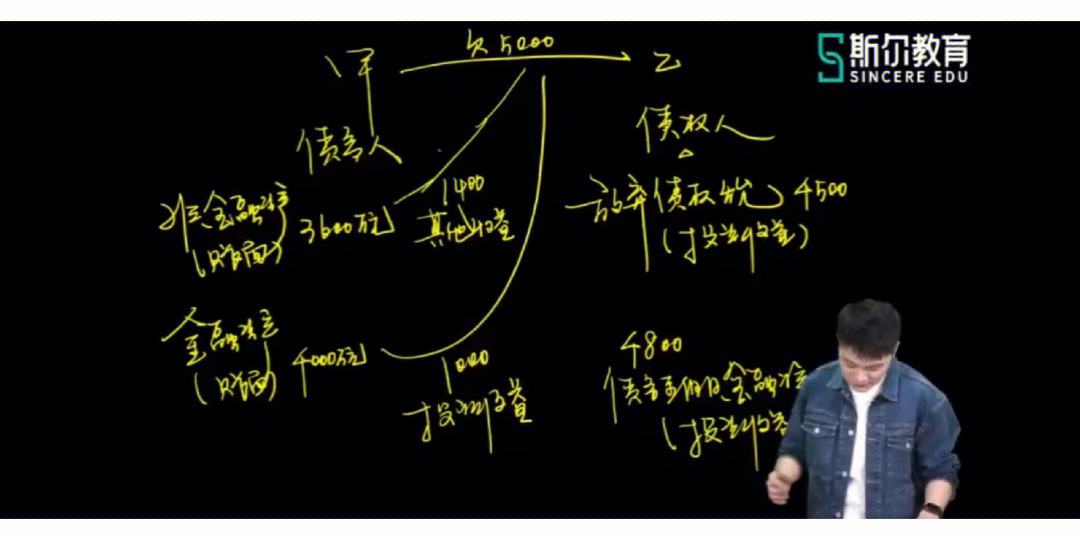 斯尔教育
SINCERE EDU
欠5000
甲
乙
债务人
债权人
非金融资产
(账面)
3600万元
1400
其他收益
放弃债权的
4500
(投资收益)
金融资产
(账面)
4000万元
1000
投资收益
4800
(投资收益